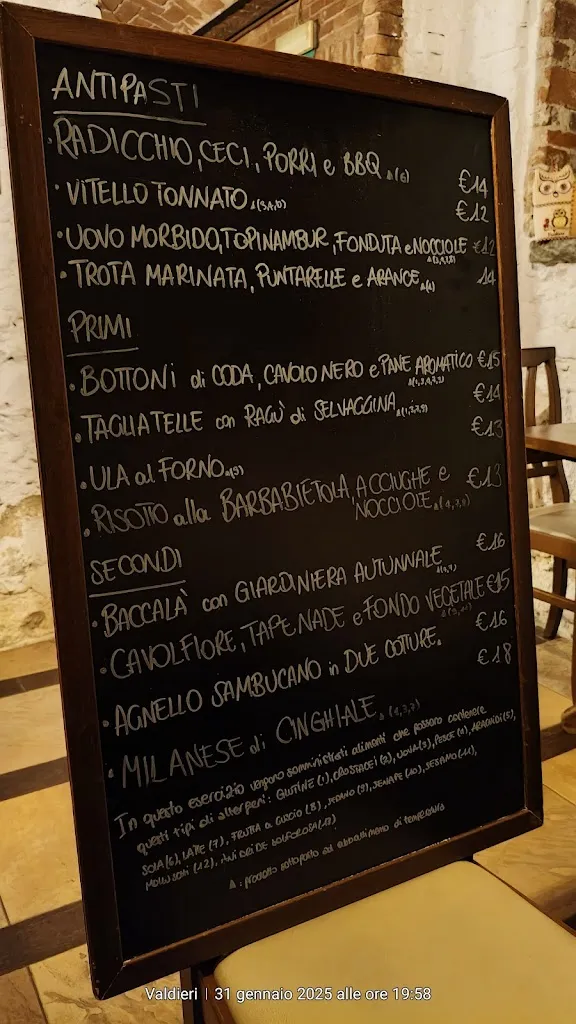 ANTIPASTI
· RADICCHIO, CECI, PORRI e BBQ Δ(6) €14
· VITELLO TONNATO €12
· UOVO MORBIDO, TOPINAMBUR, FONDUTA e NOCCIOLE €12
· TROTA MARINATA, PUNTARELLE e ARANCE 14
PRIMI
· BOTTONI di CODA, CAVOLO NERO e PANE AROMATICO €15
· TAGLIATELLE con RAGÙ di SELVAGGINA €14
· ULA al FORNO €13
· RISOTTO alla BARBABIETOLA, ACCIUGHE e €13
NOCCIOLE
SECONDI
· BACCALÀ con GIARDINIERA AUTUNNALE €16
· CAVOLFIORE, TAPENADE e FONDO VEGETALE €15
· AGNELLO SAMBUCANO in DUE COTTURE Δ €16
· MILANESE di CINGHIALE Δ(1,3,7) €18
In questo esercizio vengono somministrati alimenti che possono contenere
questi tipi di allergeni: GLUTINE (1), CROSTACEI (2), UOVA (3), PESCE (4), ARACHIDI (5),
SOIA (6), LATTE (7), FRUTTA a GUSCIO (8), SEDANO (9), SENAPE (10), SESAMO (11),
MOLLUSCHI (12),
Δ: prodotto sottoposto ad abbattimento di temperatura
Valdieri | 31 gennaio 2025 alle ore 19:58